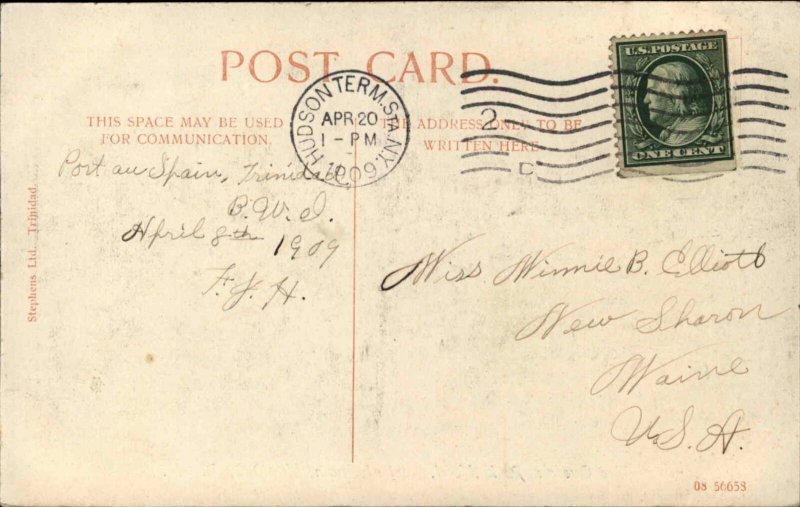 POST CARD.
THIS SPACE MAY BE USED
FOR COMMUNICATION.
THE ADDRESS ONLY TO BE
WRITTEN HERE
HUDSON TERM. STA. N.Y.
APR 20
1 - PM
1909
2
D
U.S. POSTAGE
ONE CENT
Port au Spain, Trinidad,
B.W.I.
April 8th 1909
F. J. H.
Miss Winnie B. Elliott
New Sharon
Maine
U.S.A.
Stephens Ltd., Trinidad.
08 56658